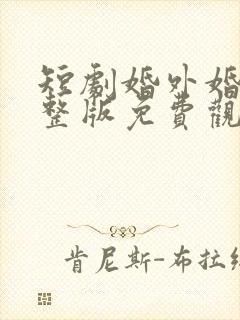 短劇婚外婚
整版免費觀
肯尼斯-布拉